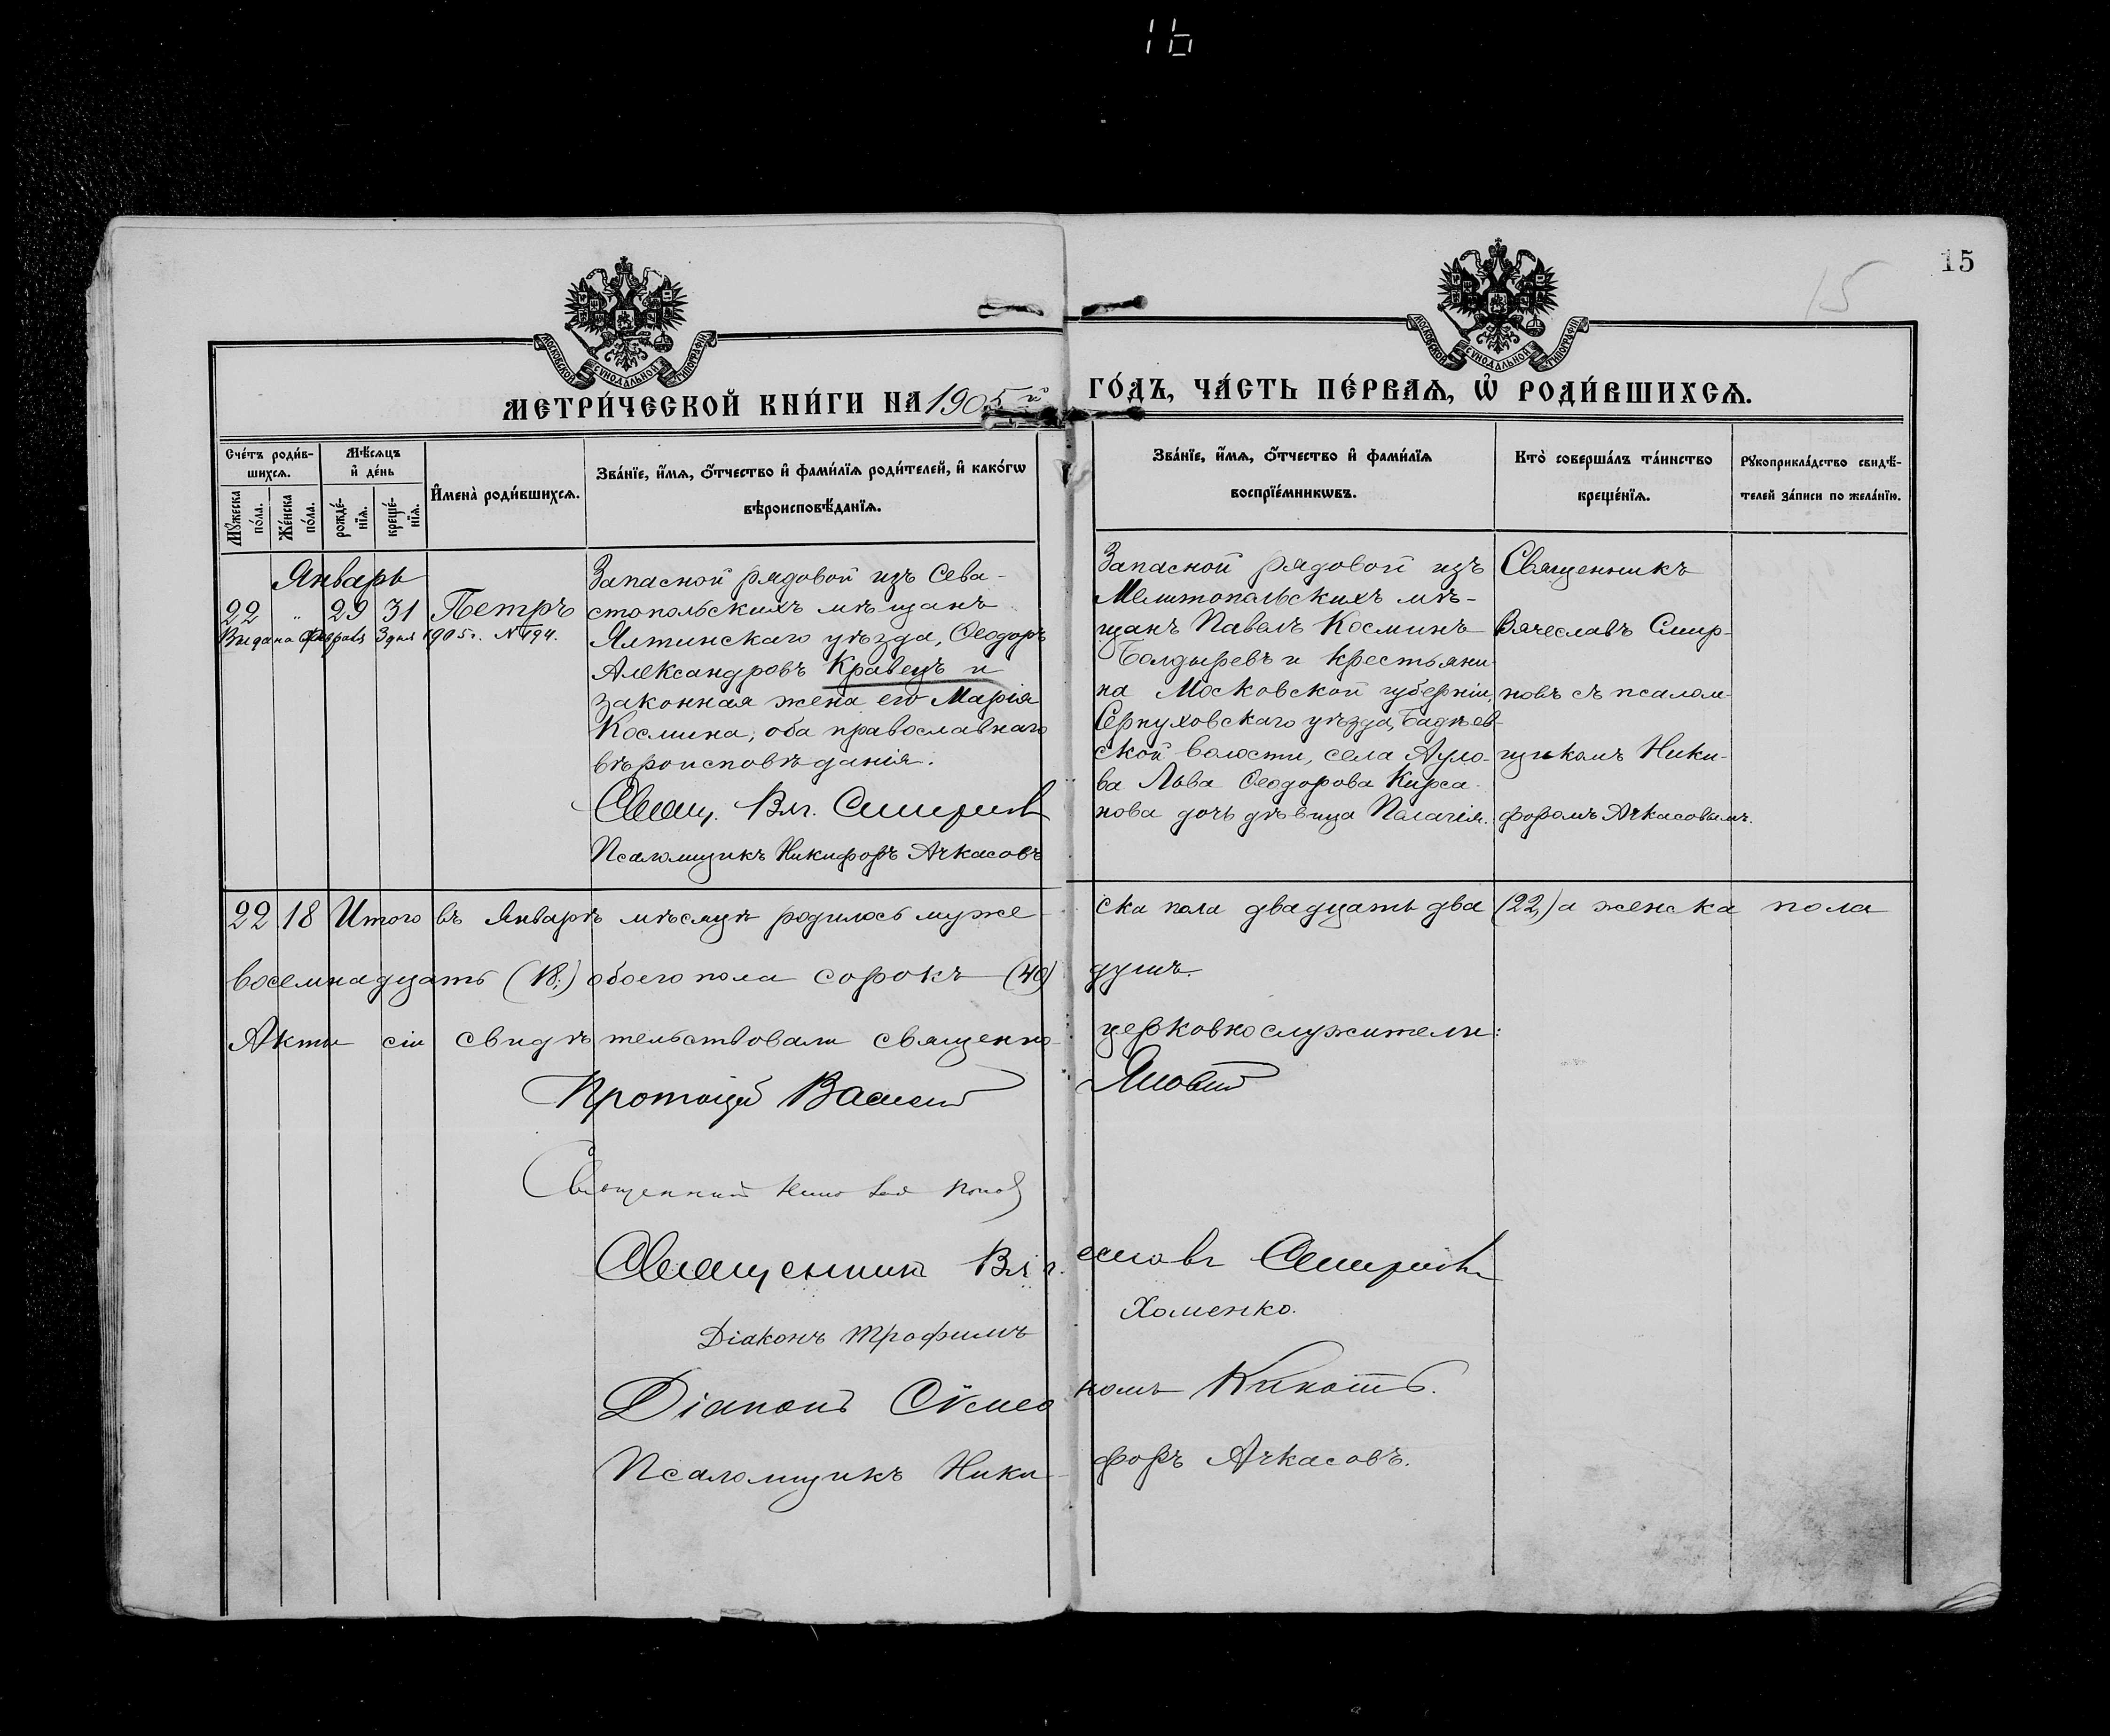 16
15
15
МОСКОВСКОЙ СУНОДАЛЬНОЙ ТИПОГРАФІИ
МОСКОВСКОЙ СУНОДАЛЬНОЙ ТИПОГРАФІИ
МЕТРИ́ЧЕСКОЙ КНИ́ГИ НА 1905 й ГО́ДЪ, ЧА́СТЬ ПЕ́РВАѦ, Ѽ РОДИ́ВШИХСѦ.
Сче́тъ роди́в-
шихсѧ.
Мꙋ́жеска по́ла.
Же́нска по́ла.
Мѣ́сѧцъ
и҆ де́нь
рожде́-
нїѧ.
креще́-
нїѧ.
И҆мена̀ роди́вшихсѧ.
Зва́нїе, и҆́мѧ, ѻ҆́тчество и҆ фами́лїѧ роди́телей, и҆ како́гѡ
вѣроисповѣ́данїѧ.
Зва́нїе, и҆́мѧ, ѻ҆́тчество и҆ фами́лїѧ
воспрїе́мникѡвъ.
Кто̀ соверша́лъ та́инство
креще́нїѧ.
Рꙋкоприкла́дство свидѣ́-
телей за́писи по жела́нїю.
Январь
22 " 29 31 Петръ
Выдана февраля 3 дня 1905 г. № 194.
Запасной рядовой изъ Сева-
стопольскихъ мѣщанъ
Ялтинскаго уѣзда, Ѳеодоръ
Александровъ Кравецъ и
законная жена его Марія
Космина, оба православнаго
вѣроисповѣданія.
Свящ. Вяч. Смирновъ
Псаломщикъ Никифоръ Ачкасовъ
Запасной рядовой изъ
Мелитопольскихъ мѣ-
щанъ Павелъ Косминъ
Болдыревъ и крестьяни-
на Московской губерніи,
Серпуховскаго уѣзда, Бадѣев-
ской волости, села Ауло-
ва Льва Ѳеодорова Кирса-
нова дочь дѣвица Пелагія.
Священникъ
Вячеславъ Смир-
новъ съ псалом-
щикомъ Ники-
форомъ Ачкасовымъ.
22 18 Итого въ Январѣ мѣсяцѣ родилось муже-ска пола двадцать два (22,) а женска пола
восемнадцать (18;) обоего пола сорокъ (40) душъ.
Акты сіи свидѣтельствовали священно-церковнослужители:
Протоіерей Василій
Священникъ Попов
Священникъ Вячеславъ Смирновъ
Діаконъ Трофимъ Хоменко.
Діаконъ Сѵмеонъ Кикоть.
Псаломщикъ Никифоръ Ачкасовъ.